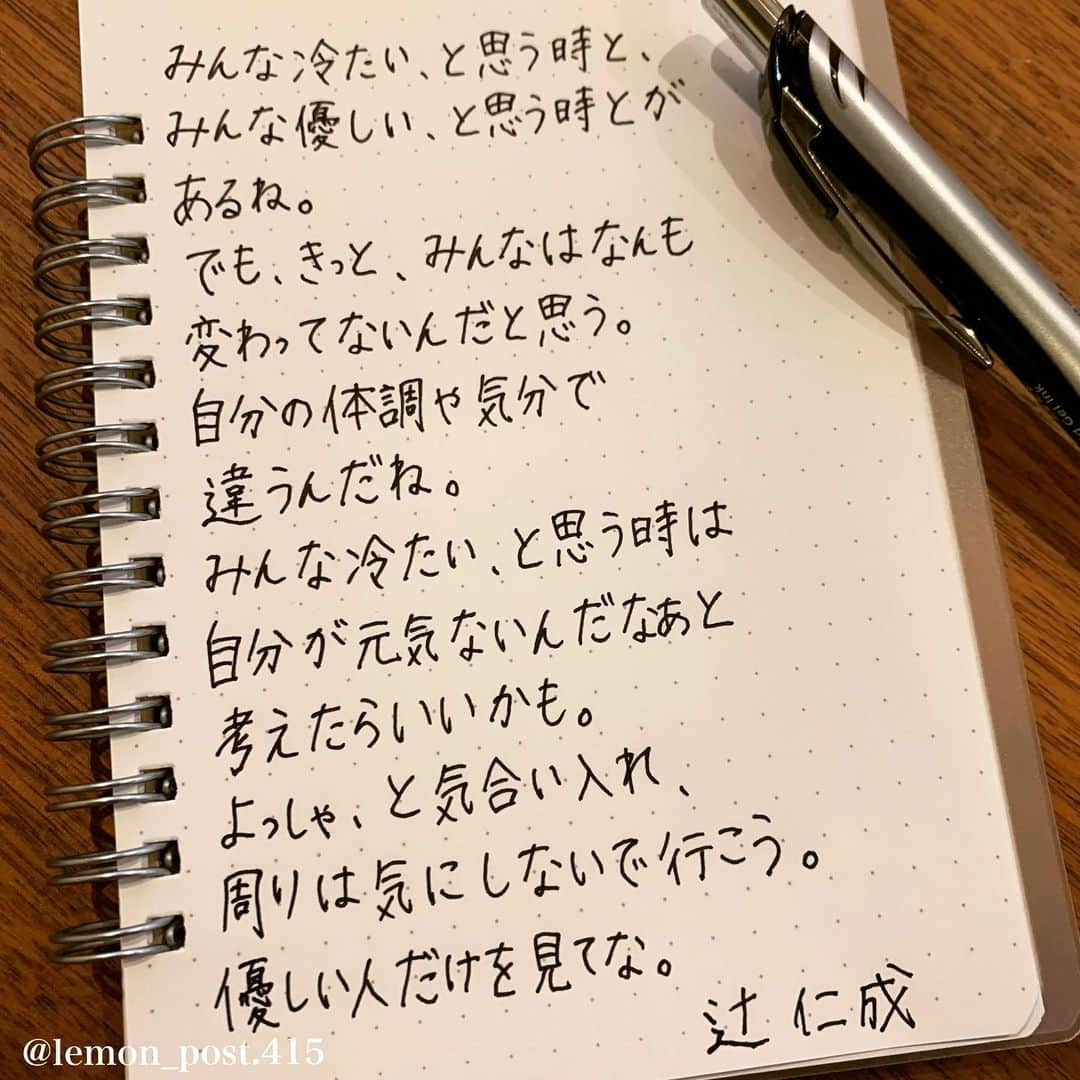 みんな冷たい、と思う時と、
みんな優しい、と思う時とが
あるね。
でも、きっと、みんなはなんも
変わってないんだと思う。
自分の体調や気分で
違うんだね。
みんな冷たい、と思う時は
自分が元気ないんだなぁと
考えたらいいかも。
よっしゃ、と気合い入れ、
周りは気にしないで行こう。
優しい人だけを見てな。
辻 仁成
@lemon_post.415
Gel Ink